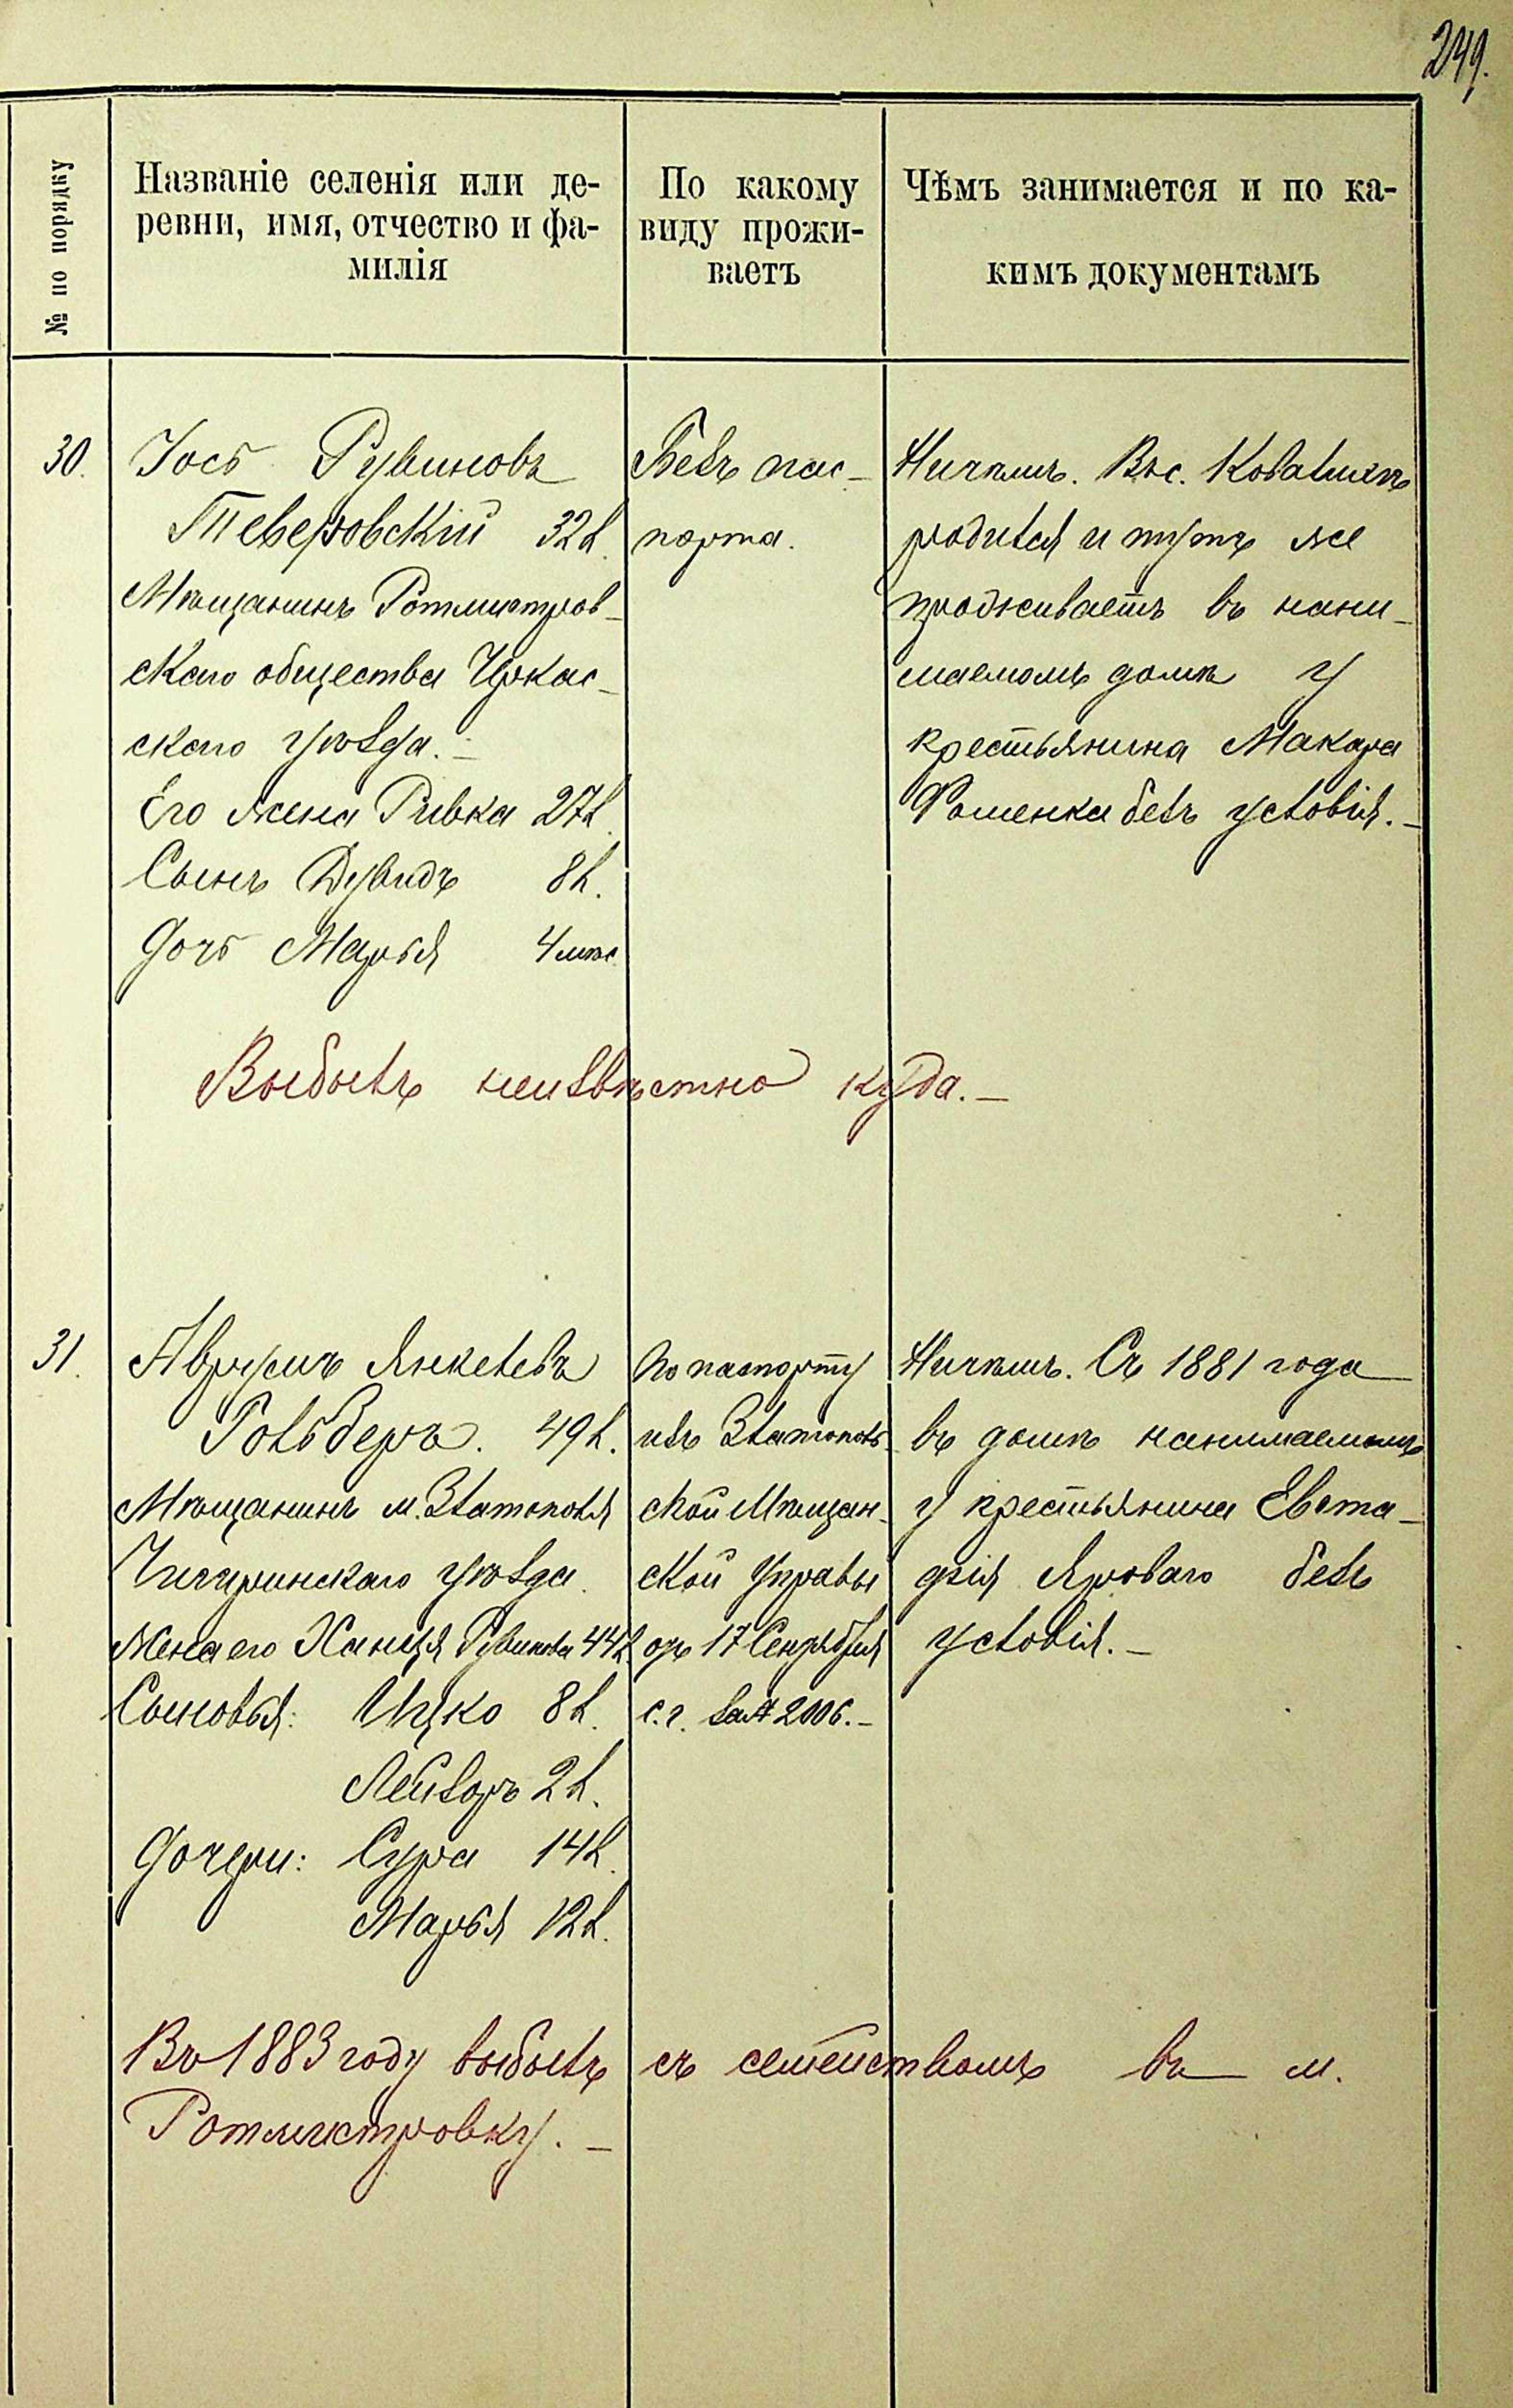 249.
№ по порядку
Названіе селенія или де-
ревни, имя, отчество и фа-
милія
По какому
виду прожи-
ваетъ
Чѣмъ занимается и по ка-
кимъ документамъ
30.
Іось Рувиновъ
Теверовскій 32 л.
Мѣщанинъ Ротмистров-
скаго общества Черкас-
скаго уѣзда. -
Его жена Ривка 27 л.
Сынъ Дувидъ 8 л.
Дочь Марья 4 мѣс
Безъ пас-
порта.
Ничѣмъ. Въ с. Ковалихѣ
родился и тутъ же
проживаетъ въ нани-
маемомъ домѣ у
крестьянина Макара
Фоменка безъ условія. -
Выбылъ неизвѣстно куда. -
31.
Аврумъ Янкелевъ
Гольберъ. 49 л.
Мѣщанинъ м. Златополя
Чигиринскаго уѣзда.
Жена его Ханця Рувинова 44 л.
Сыновья: Ицко 8 л.
Лейзоръ 2 л.
Дочери: Сура 14 л.
Марья 12 л.
По паспорту
изъ Златополь-
ской Мѣщан-
ской Управы
отъ 17 Сентября
с. г. за № 2006. -
Ничѣмъ. Съ 1881 года
въ домѣ нанимаемомъ
у крестьянина Евста-
фія Яроваго безъ
условія. -
Въ 1883 году выбылъ съ семействомъ въ м.
Ротмистровку. -